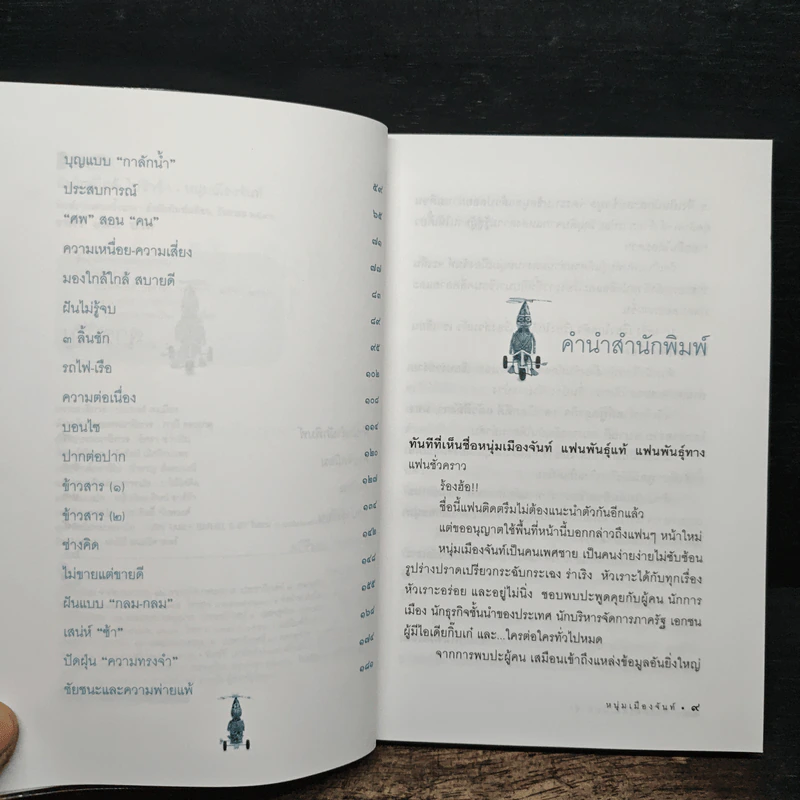 บุญแบบ “กาลักน้ำ” ๕๙
ประสบการณ์ ๖๕
“ศพ” สอน “คน” ๗๑
ความเหนื่อย-ความเสี่ยง ๗๗
มองใกล้ใกล้ สบายดี ๘๓
ฝันไม่รู้จบ ๘๙
๓ ลิ้นชัก ๙๕
รถไฟ-เรือ ๑๐๒
ความต่อเนื่อง ๑๐๘
บอนไซ ๑๑๔
ปากต่อปาก ๑๒๐
ข้าวสาร (๑) ๑๒๗
ข้าวสาร (๒) ๑๓๔
ช่างคิด ๑๔๒
ไม่ขายแต่ขายดี ๑๔๘
ฝันแบบ “กลม-กลม” ๑๕๕
เสน่ห์ “ช้า” ๑๖๔
ปัดฝุ่น “ความทรงจำ” ๑๗๔
ชัยชนะและความพ่ายแพ้ ๑๘๑
คำนำสำนักพิมพ์
ทันทีที่เห็นชื่อหนุ่มเมืองจันท์ แฟนพันธุ์แท้ แฟนพันธุ์ทาง
แฟนชั่วคราว
ร้องฮ้อ!!
ชื่อนี้แฟนติดตรึมไม่ต้องแนะนำตัวกันอีกแล้ว
แต่ขออนุญาตใช้พื้นที่หน้านี้บอกกล่าวถึงแฟนๆ หน้าใหม่
หนุ่มเมืองจันท์เป็นคนเพศชาย เป็นคนง่ายง่ายไม่ซับซ้อน
รูปร่างปราดเปรียวกระฉับกระเฉง ร่าเริง หัวเราะได้กับทุกเรื่อง
หัวเราะอร่อย และอยู่ไม่นิ่ง ชอบพบปะพูดคุยกับผู้คน นักการ
เมือง นักธุรกิจชั้นนำของประเทศ นักบริหารจัดการภาครัฐ เอกชน
ผู้มีไอเดียกิ๊บเก๋ และ...ใครต่อใครทั่วไปหมด
จากการพบปะผู้คน เสมือนเข้าถึงแหล่งข้อมูลอันยิ่งใหญ่
หนุ่มเมืองจันท์ • ๙